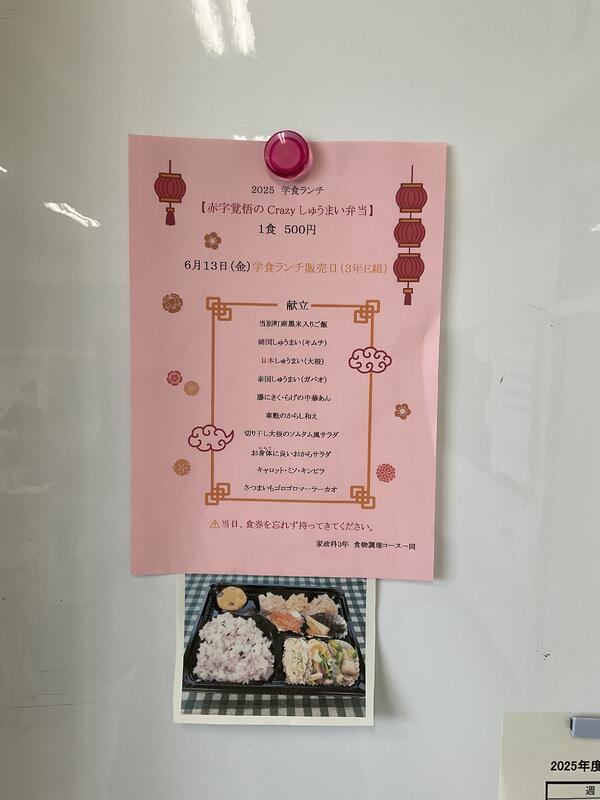 2025 学食ランチ
【赤字覚悟の Crazy しゅうまい弁当】
1食 500円
6月13日(金)学食ランチ販売日(3年E組)
献立
当別町産黒米入りご飯
韓国しゅうまい(キムチ)
日本しゅうまい(大根)
泰国しゅうまい(ガパオ)
腸にきく・らげの中華あん
車麩のからし和え
切り干し大根のソムタム風サラダ
お身体に良いおからサラダ
キャロット・ミソ・キンピラ
さつまいもゴロゴロマーラーカオ
⚠当日、食券を忘れず持ってきてください。
家政科3年 食物調理コース一同
2025年度
週